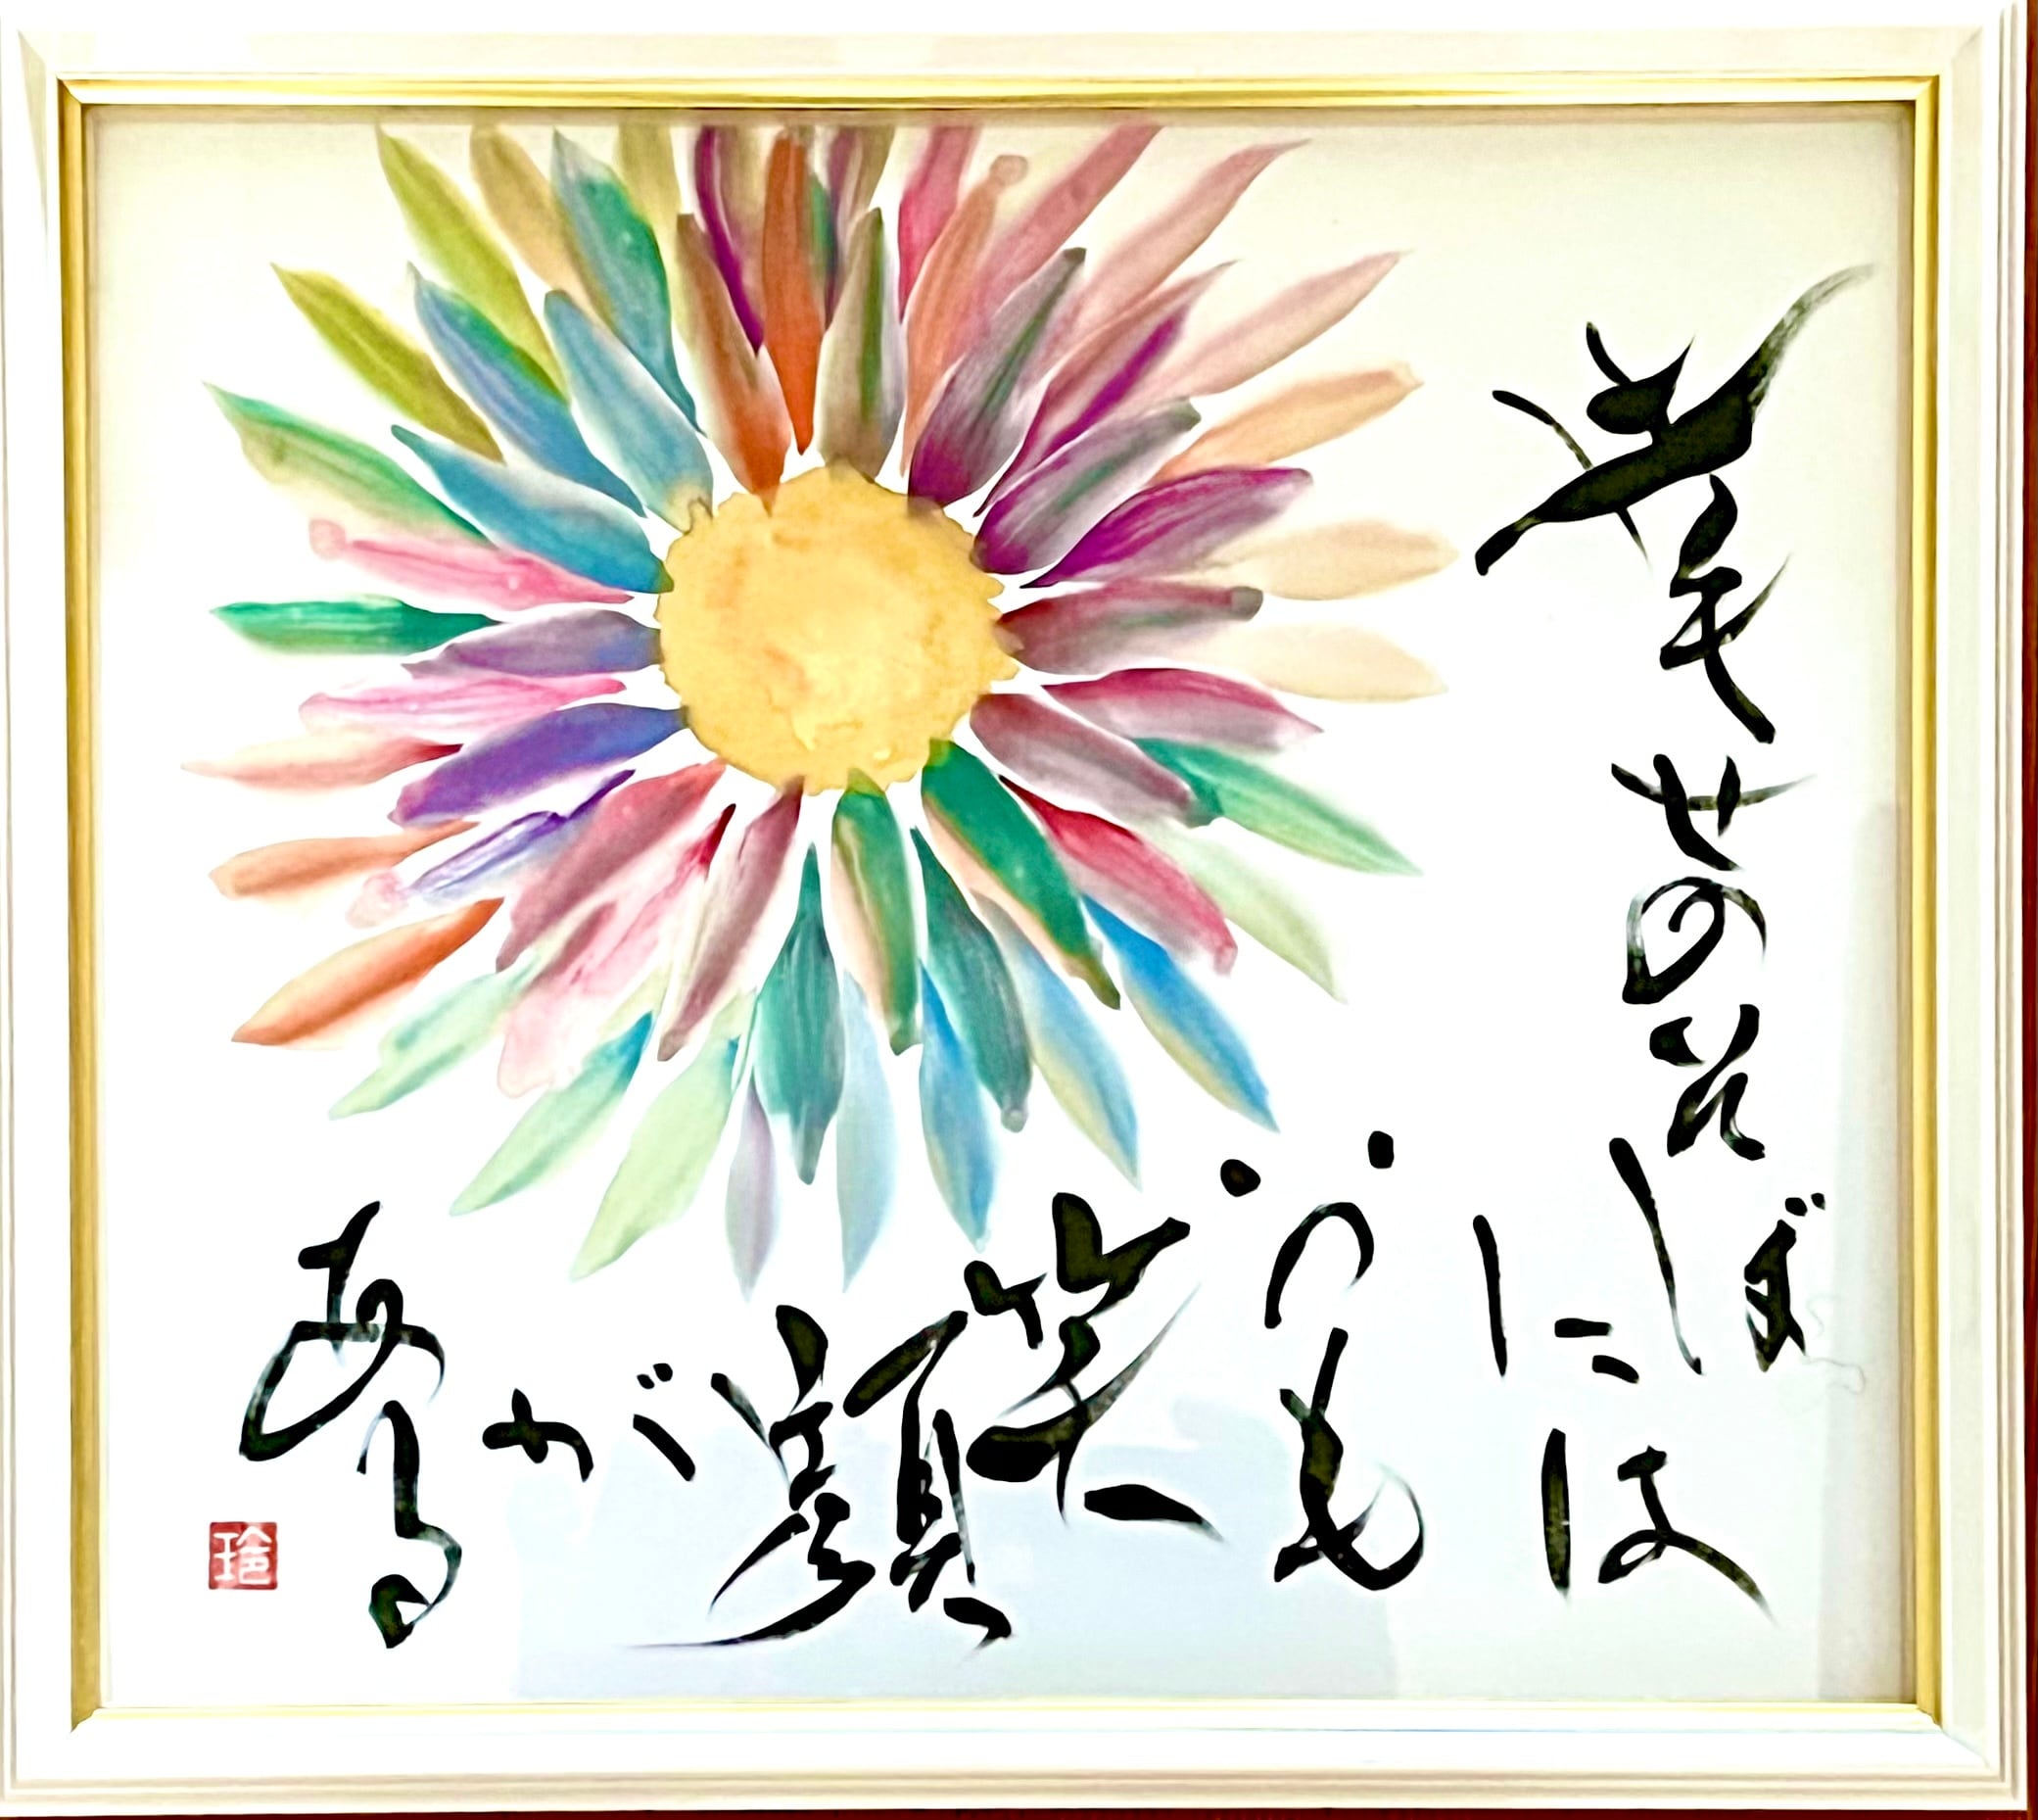 幸せのそば
には
いつも
笑顔が
ある
玲